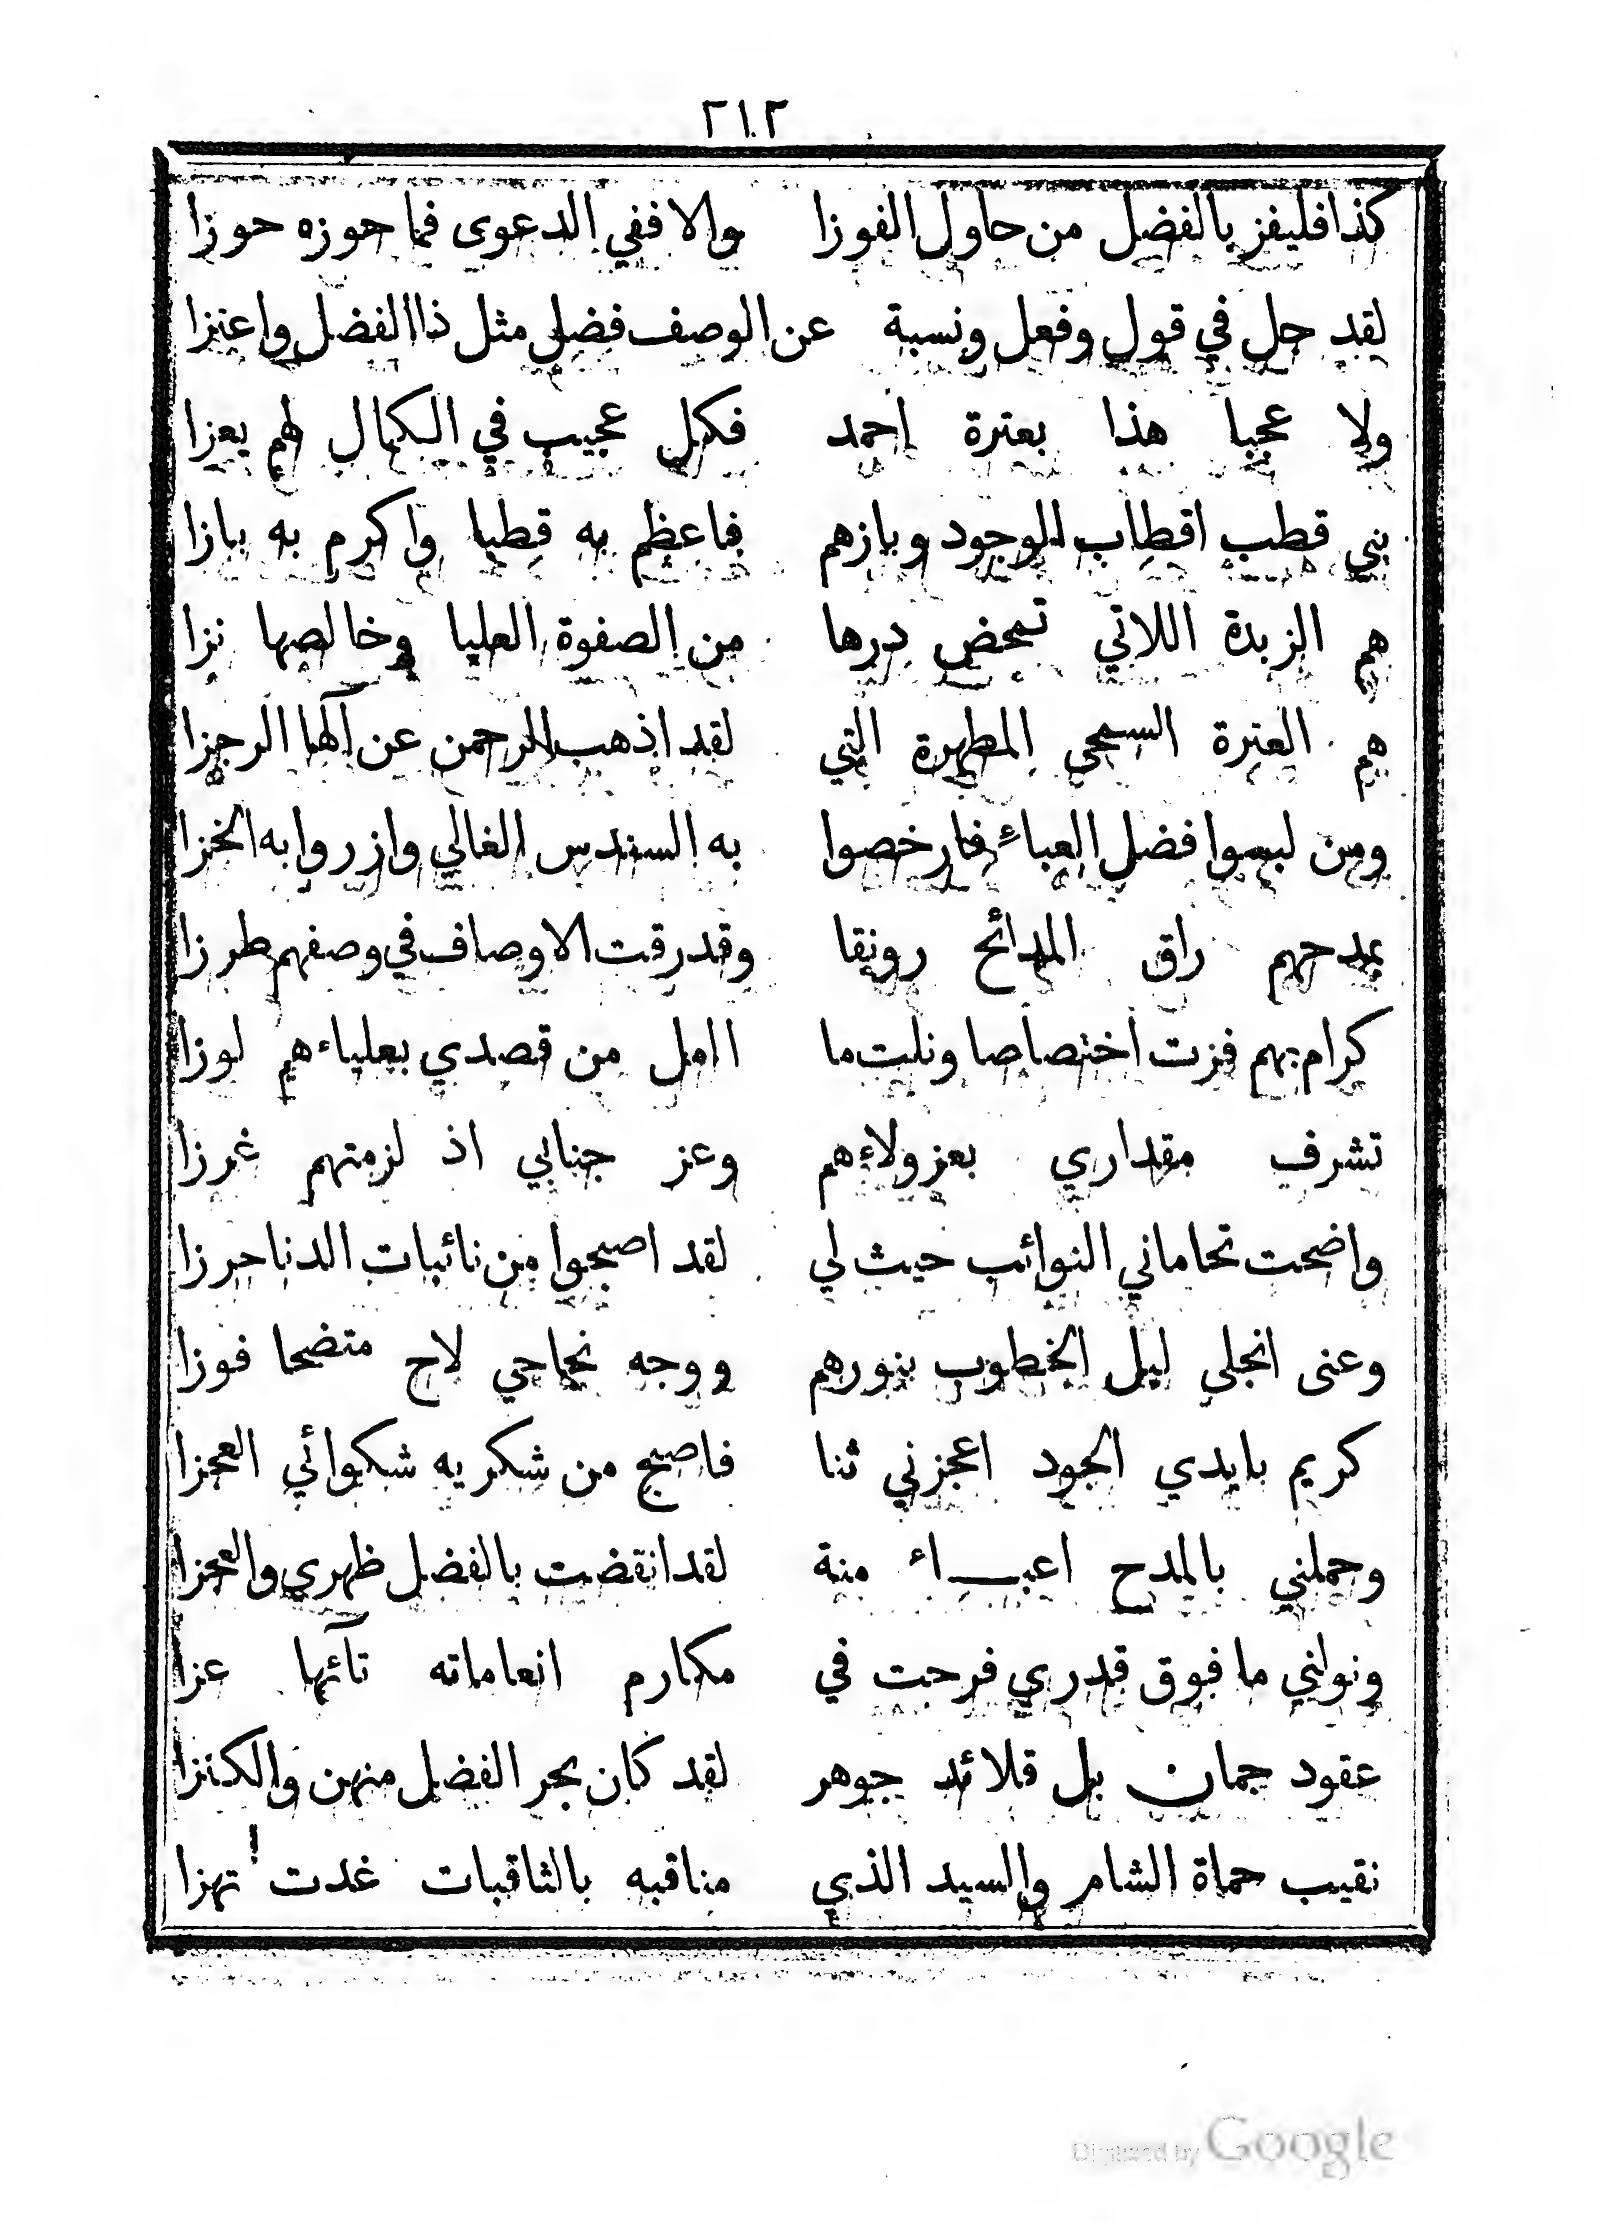 ٢١٢
كذا فليفز بالفضل من حاول الفوزا والا ففي الدعوى فما حوزه حوزا
لقد جل في قول وفعل ونسبة عن الوصف فضل مثل ذا الفضل واعتزا
ولا عجبا هذا بعترة احمد فكل عجيب في الكمال لهم يعزا
بني قطب اقطاب الوجود وبازهم فاعظم به قطبا واكرم به بازا
هم الزبدة اللاتي تمحض درها من الصفوة العليا وخالصها نزا
هم العترة السمحى المطهرة التي لقد اذهب الرحمن عن آلها الرجزا
ومن لبسوا فضل العباء فارخصوا به السندس الغالي وازروا به الخزا
بمدحهم راق المدائح رونقا وقد رقت الاوصاف في وصفهم طرزا
كرام بهم فزت اختصاصا ونلت ما اامل من قصدي بعلياءهم لوزا
تشرف مقداري بعز ولاءهم وعز جنابي اذ لزمتهم غرزا
واضحت تحاماني النوائب حيث لي لقد اصبحوا من نائبات الدنا حرزا
وعنى انجلى ليل الخطوب بنورهم ووجه نجاحي لاح متضحا فوزا
كريم بايدي الجود اعجزني ثنا فاصبح من شكريه شكوائي العجزا
وحملني بالمدح اعباء منة لقد انقضت بالفضل ظهري والعجزا
ونولني ما فوق قدري فرحت في مكارم انعاماته تآئها عزا
عقود جمان بل قلائد جوهر لقد كان بحر الفضل منهن والكنزا
نقيب حماة الشام والسيد الذي مناقبه بالثاقبات غدت تهزا
Digitized by Google